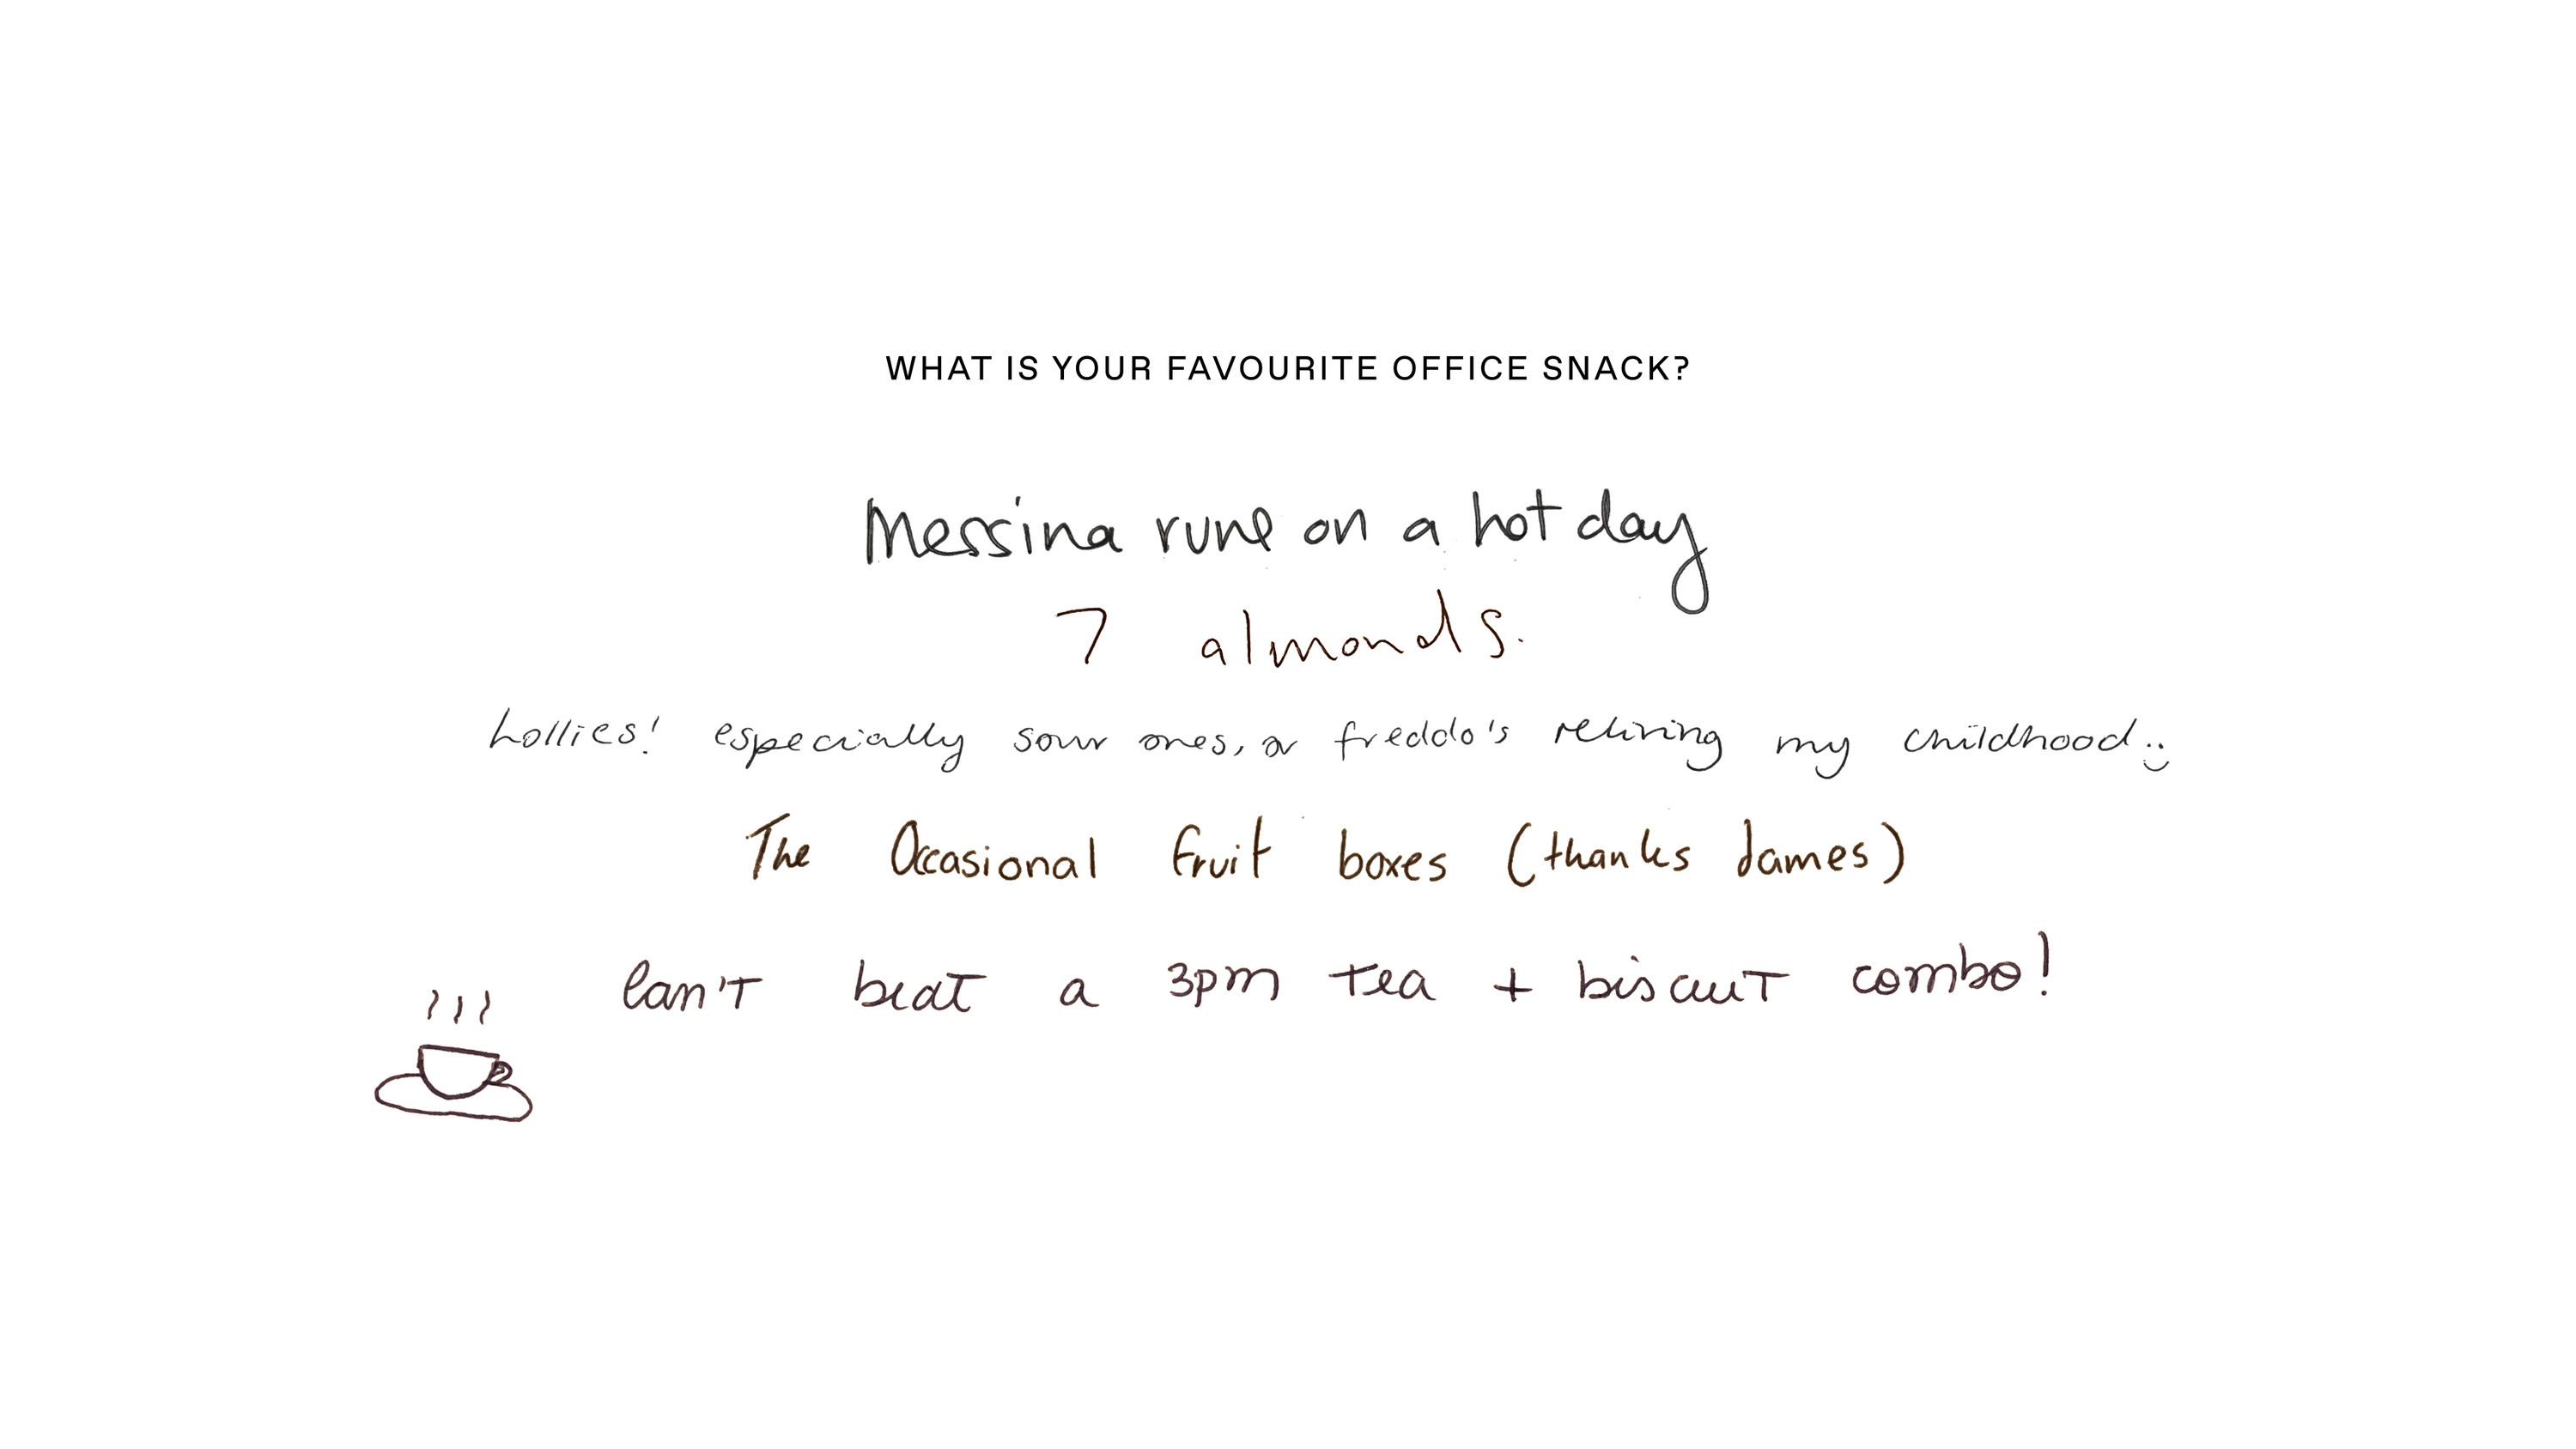 WHAT IS YOUR FAVOURITE OFFICE SNACK?
Messina runs on a hot day
7 almonds.
Lollies! especially sour ones, or freddo's reliving my childhood
The Occasional fruit boxes (thanks James)
Can't beat a 3pm tea + biscuit combo!